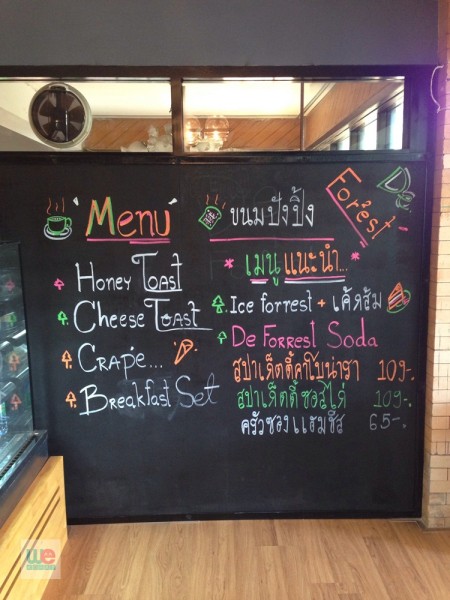 Menu
Honey Toast
Cheese Toast
Crape...
Breakfast Set
ขนมปังปิ้ง
De Forest
* เมนูแนะนำ... *
Ice forrest + เค้กส้ม
De Forrest Soda
สปาเก็ตตี้คาโบนาร่า 109-.
สปาเก็ตตี้ซอสไก่ 109-.
ครัวซองแฮมชีส 65-.
we